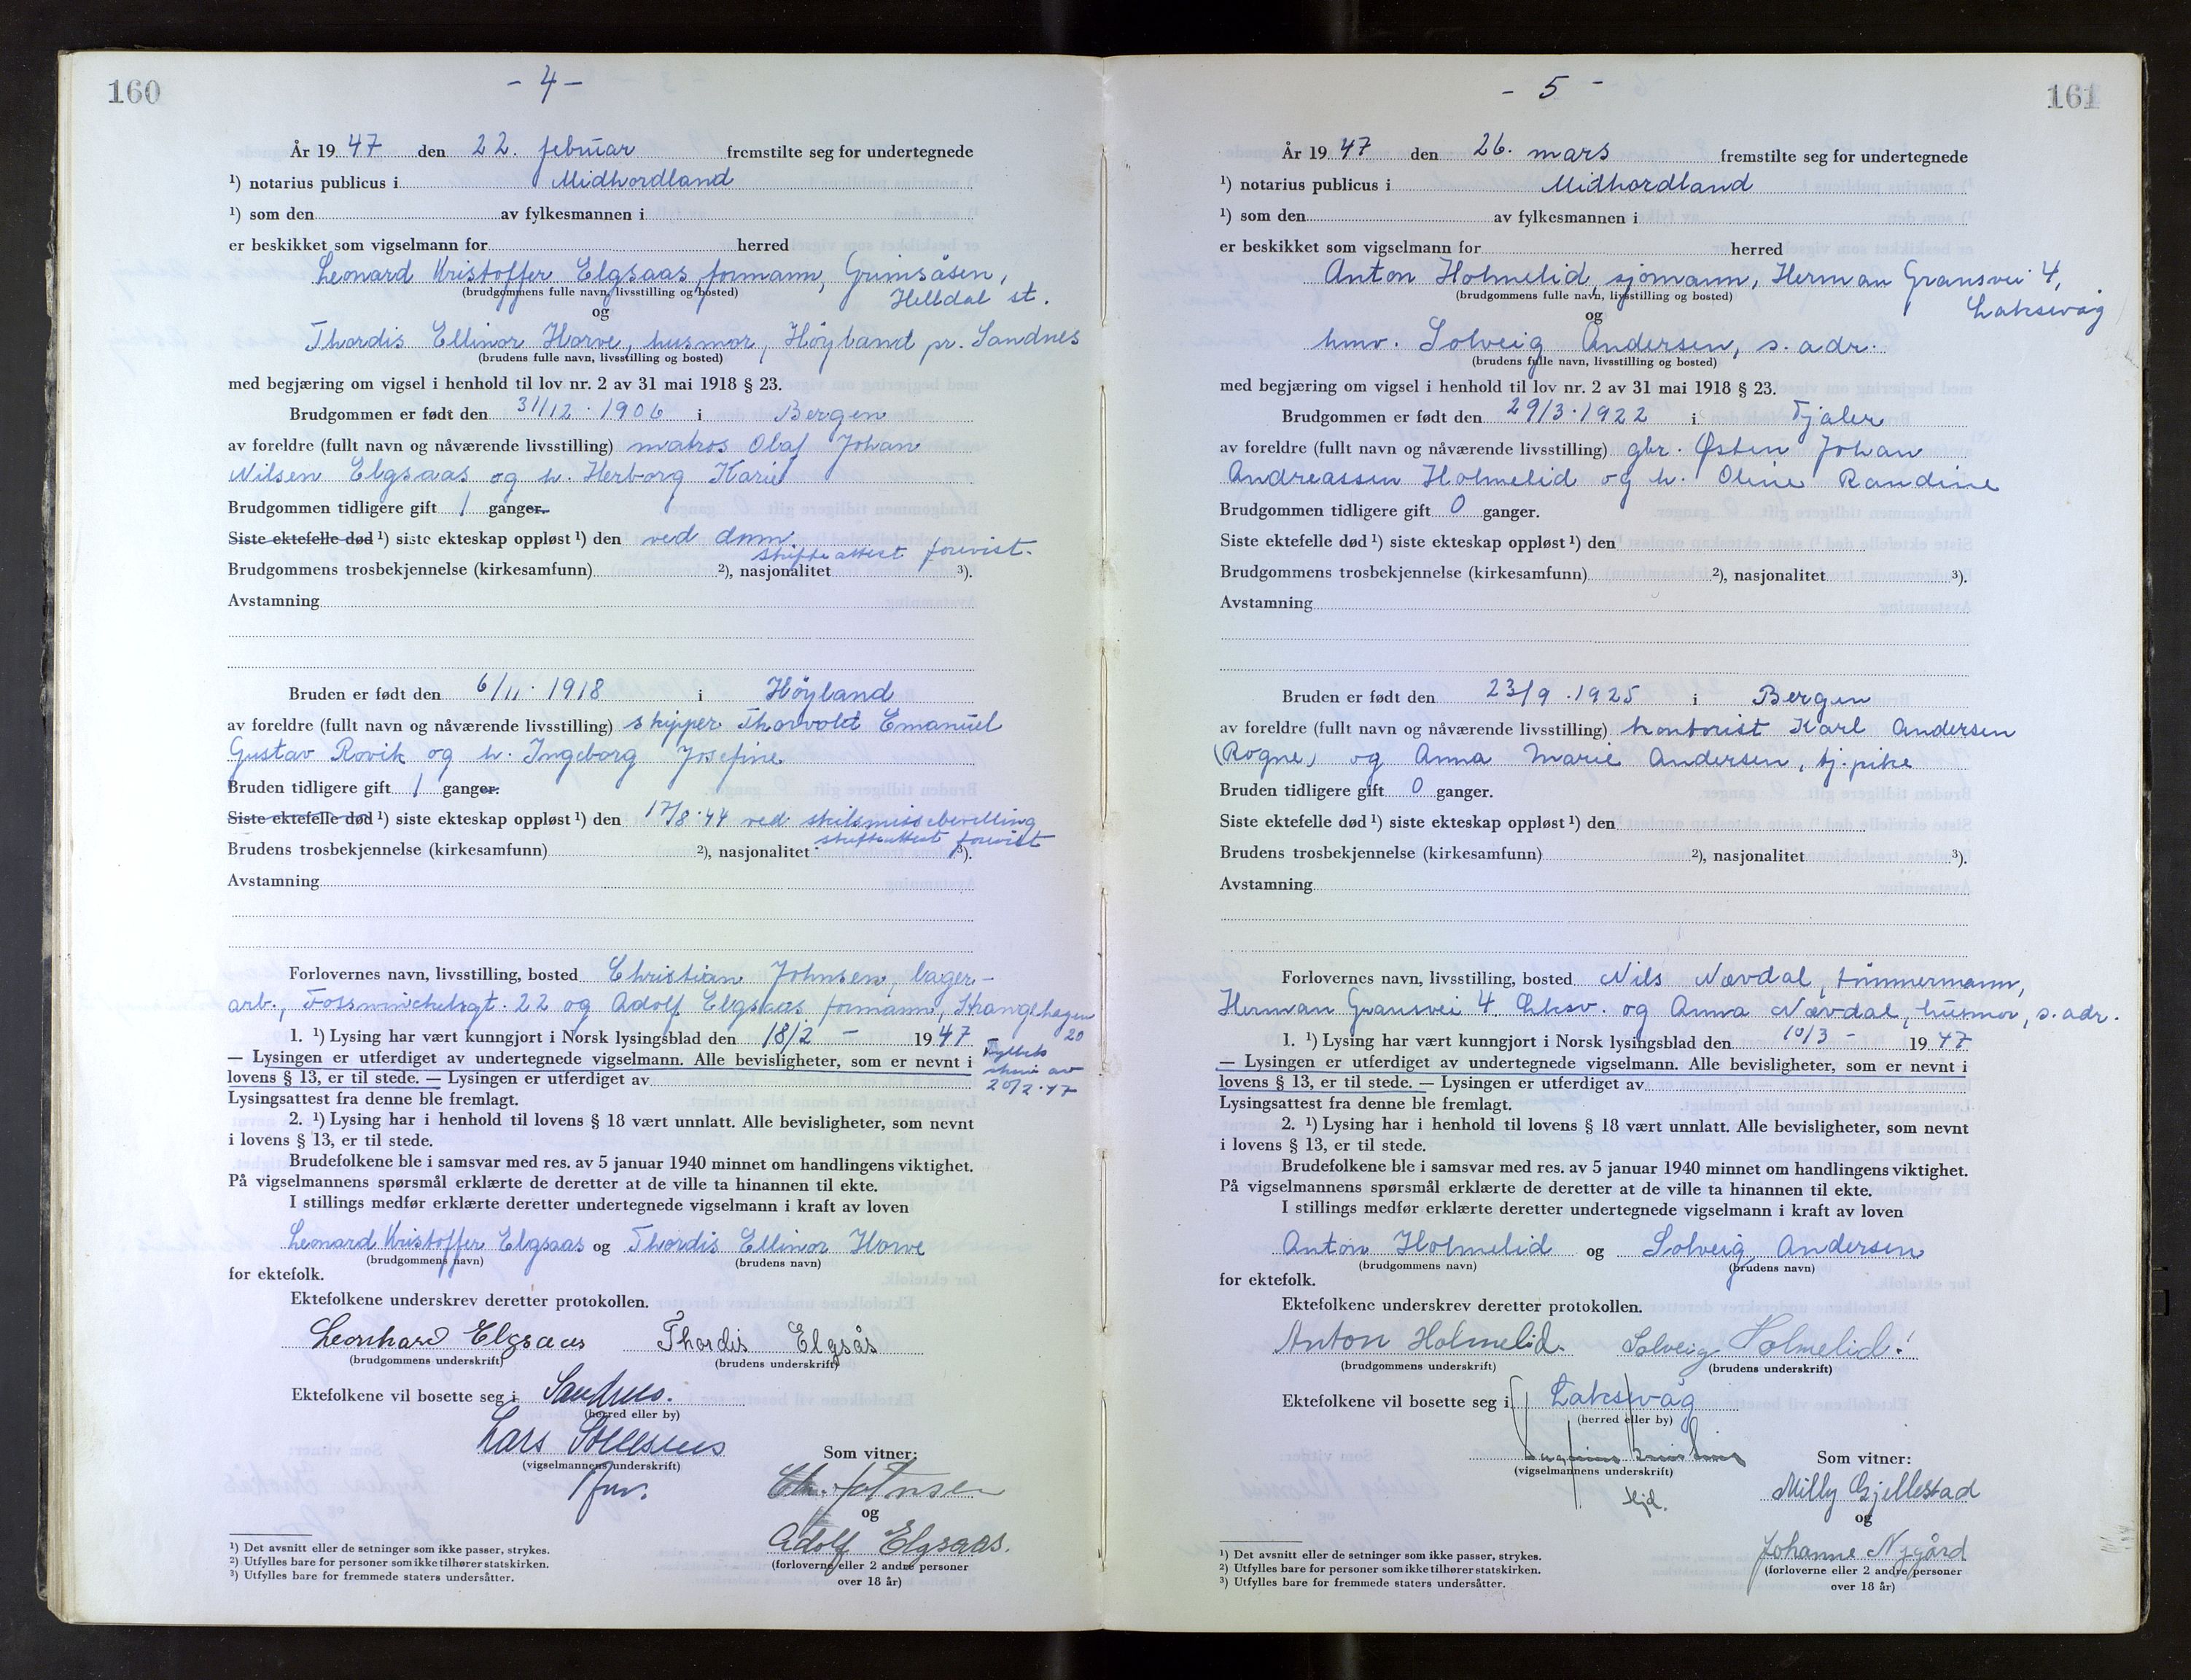 160
- 4 -
År 19 47 den 22. februar fremstilte seg for undertegnede
¹) notarius publicus i Midhordland
¹) som den av fylkesmannen i
er beskikket som vigselmann for herred
Leonard Kristoffer Elgsaas, formann, Grimsåsen,
(brudgommens fulle navn, livsstilling og bosted)
Helldal st.
og
Thordis Ellinor Horve, husmor, Höyland pr. Sandnes
(brudens fulle navn, livsstilling og bosted)
med begjæring om vigsel i henhold til lov nr. 2 av 31 mai 1918 § 23.
Brudgommen er født den 31/12. 1906 i Bergen
av foreldre (fullt navn og nåværende livsstilling) matros Olaf Johan
Nilsen Elgsaas og h. Herborg Karie
Brudgommen tidligere gift 1 ganger.
Siste ektefelle død ¹) siste ekteskap oppløst ¹) den ved dom.
skifteattest forevist.
Brudgommens trosbekjennelse (kirkesamfunn) ²), nasjonalitet ³).
Avstamning
Bruden er født den 6/11. 1918 i Höyland
av foreldre (fullt navn og nåværende livsstilling) skipper Thorvold Emanuel
Gustav Rovik og h. Ingeborg Josefine
Bruden tidligere gift 1 ganger.
Siste ektefelle død ¹) siste ekteskap oppløst ¹) den 17/8.44 ved skilsmissebevilling
skifteattest forevist
Brudens trosbekjennelse (kirkesamfunn) ²), nasjonalitet ³).
Avstamning
Forlovernes navn, livsstilling, bosted Christian Johnsen, lager-
arb., Fosswinckelsgt. 22 og Adolf Elgsaas formann, Skangehagen
20
1. ¹) Lysing har vært kunngjort i Norsk lysingsblad den 18/2 - 19 47
— Lysingen er utferdiget av undertegnede vigselmann. Alle bevisligheter, som er nevnt i
lovens § 13, er til stede. — Lysingen er utferdiget av
av
20/2.47
Lysingsattest fra denne ble fremlagt.
2. ¹) Lysing har i henhold til lovens § 18 vært unnlatt. Alle bevisligheter, som nevnt
i lovens § 13, er til stede.
Brudefolkene ble i samsvar med res. av 5 januar 1940 minnet om handlingens viktighet.
På vigselmannens spørsmål erklærte de deretter at de ville ta hinannen til ekte.
I stillings medfør erklærte deretter undertegnede vigselmann i kraft av loven
Leonard Kristoffer Elgsaas og Thordis Ellinor Horve
(brudgommens navn) (brudens navn)
for ektefolk.
Ektefolkene underskrev deretter protokollen.
Leonhard Elgsaas Thordis Elgsås
(brudgommens underskrift) (brudens underskrift)
Ektefolkene vil bosette seg i Sandnes.
(herred eller by)
Lars
(vigselmannens underskrift)
Som vitner:
Chr. Johnsen
og
Adolf Elgsaas.
(forloverne eller 2 andre personer
over 18 år)
¹) Det avsnitt eller de setninger som ikke passer, strykes.
²) Utfylles bare for personer som ikke tilhører statskirken.
³) Utfylles bare for fremmede staters undersåtter.
161
- 5 -
År 19 47 den 26. mars fremstilte seg for undertegnede
¹) notarius publicus i Midhordland
¹) som den av fylkesmannen i
er beskikket som vigselmann for herred
Anton Holmelid, sjömann, Herman Gransvei 4,
(brudgommens fulle navn, livsstilling og bosted)
Laksevåg
og
hmv. Solveig Andersen, s. adr.
(brudens fulle navn, livsstilling og bosted)
med begjæring om vigsel i henhold til lov nr. 2 av 31 mai 1918 § 23.
Brudgommen er født den 29/3.1922 i Fjaler
av foreldre (fullt navn og nåværende livsstilling) gbr. Østen Johan
Andreassen Holmelid og h. Oline Randine
Brudgommen tidligere gift 0 ganger.
Siste ektefelle død ¹) siste ekteskap oppløst ¹) den
Brudgommens trosbekjennelse (kirkesamfunn) ²), nasjonalitet ³).
Avstamning
Bruden er født den 23/9.1925 i Bergen
av foreldre (fullt navn og nåværende livsstilling) kontorist Karl Andersen
(Rogne) og Anna Marie Andersen, tj.pike
Bruden tidligere gift 0 ganger.
Siste ektefelle død ¹) siste ekteskap oppløst ¹) den
Brudens trosbekjennelse (kirkesamfunn) ²), nasjonalitet ³).
Avstamning
Forlovernes navn, livsstilling, bosted Nils Nævdal, tömmermann,
Herman Gransvei 4 Lksv. og Anna Nævdal, husmor, s. adr.
1. ¹) Lysing har vært kunngjort i Norsk lysingsblad den 10/3 - 19 47
— Lysingen er utferdiget av undertegnede vigselmann. Alle bevisligheter, som er nevnt i
lovens § 13, er til stede. — Lysingen er utferdiget av
Lysingsattest fra denne ble fremlagt.
2. ¹) Lysing har i henhold til lovens § 18 vært unnlatt. Alle bevisligheter, som nevnt
i lovens § 13, er til stede.
Brudefolkene ble i samsvar med res. av 5 januar 1940 minnet om handlingens viktighet.
På vigselmannens spørsmål erklærte de deretter at de ville ta hinannen til ekte.
I stillings medfør erklærte deretter undertegnede vigselmann i kraft av loven
Anton Holmelid og Solveig Andersen
(brudgommens navn) (brudens navn)
for ektefolk.
Ektefolkene underskrev deretter protokollen.
Anton Holmelid. Solveig Holmelid!
(brudgommens underskrift) (brudens underskrift)
Ektefolkene vil bosette seg i Laksevåg
(herred eller by)
(vigselmannens underskrift)
Som vitner:
Milly Gjellestad
og
Johanne Nygård
(forloverne eller 2 andre personer
over 18 år)
¹) Det avsnitt eller de setninger som ikke passer, strykes.
²) Utfylles bare for personer som ikke tilhører statskirken.
³) Utfylles bare for fremmede staters undersåtter.